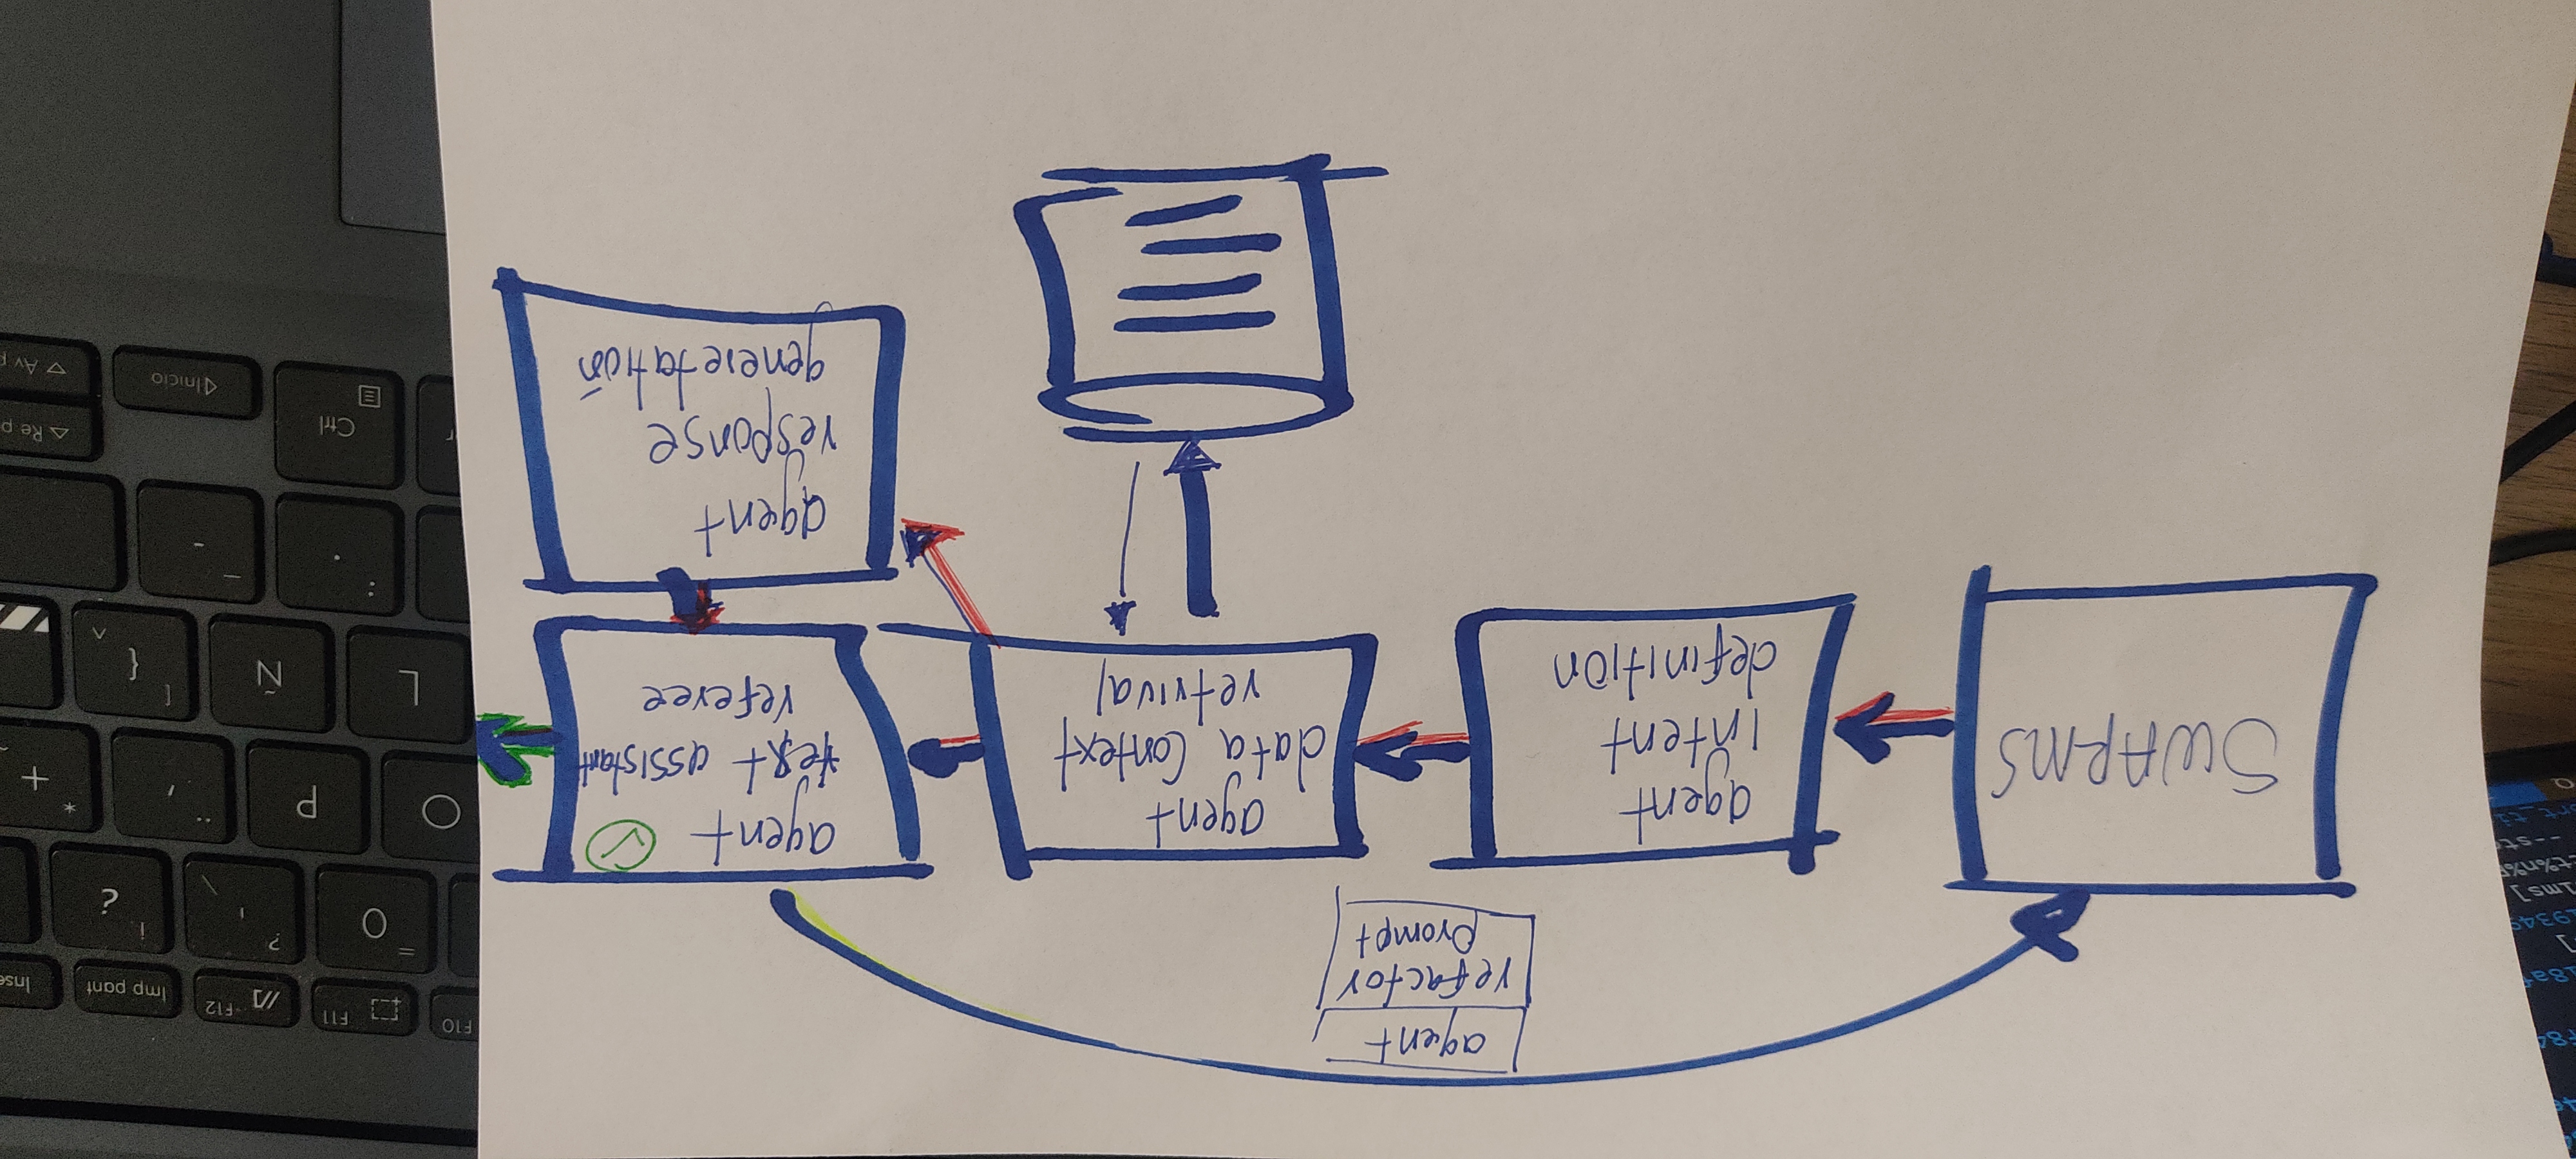 agent
refactor
prompt
SWARMS
agent
intent
definition
agent
data Context
retrival
agent
test assistant
referee
agent
response
generetatión
F10
F11
F12
Imp pant
Inse
=
O
?
'
\
¡
¿
O
P
¨
*
+
L
Ñ
[
{
^
:
.
-
Ctrl
Inicio
Re p
Av p
f84
18af
]
19349
1ms]
--st
ort_ti